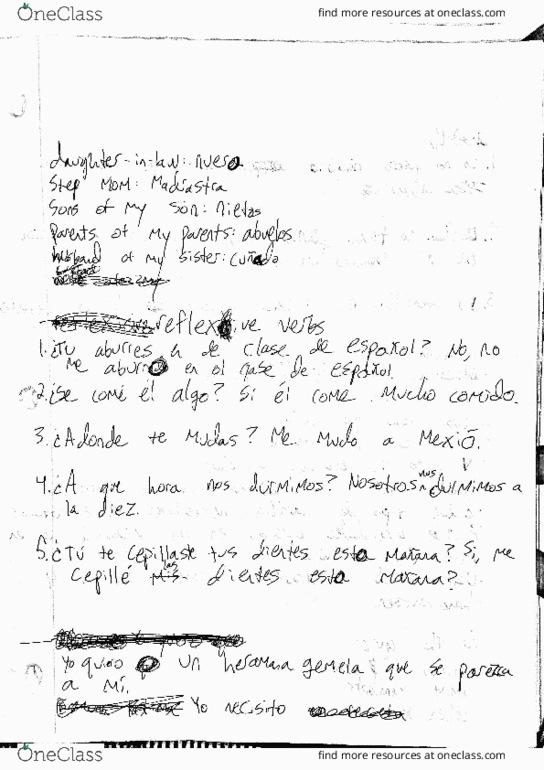 OneClass
find more resources at oneclass.com
daughter-in-law: nuera
Step Mom: Madrastra
Sons of my son: nietas
Parents of my parents: abuelos
husband of my sister: cuñado
reflexive verbs
1. ¿Tu aburres en de clase de español? No, no
me aburro en el clase de español
2. ¿Se comé él algo? Si él come mucho comido.
3. ¿Adonde te mudas? Me mudo a Mexió.
4. ¿A que hora nos durmimos? Nosotros nos durmimos a
la diez.
5. ¿Tú te cepillaste tus dientes esta mañana? Si, me
cepillé los dientes esta mañana?
Yo quiro un heramana gemela que se parezca
a mí.
Yo necisito
OneClass
find more resources at oneclass.com